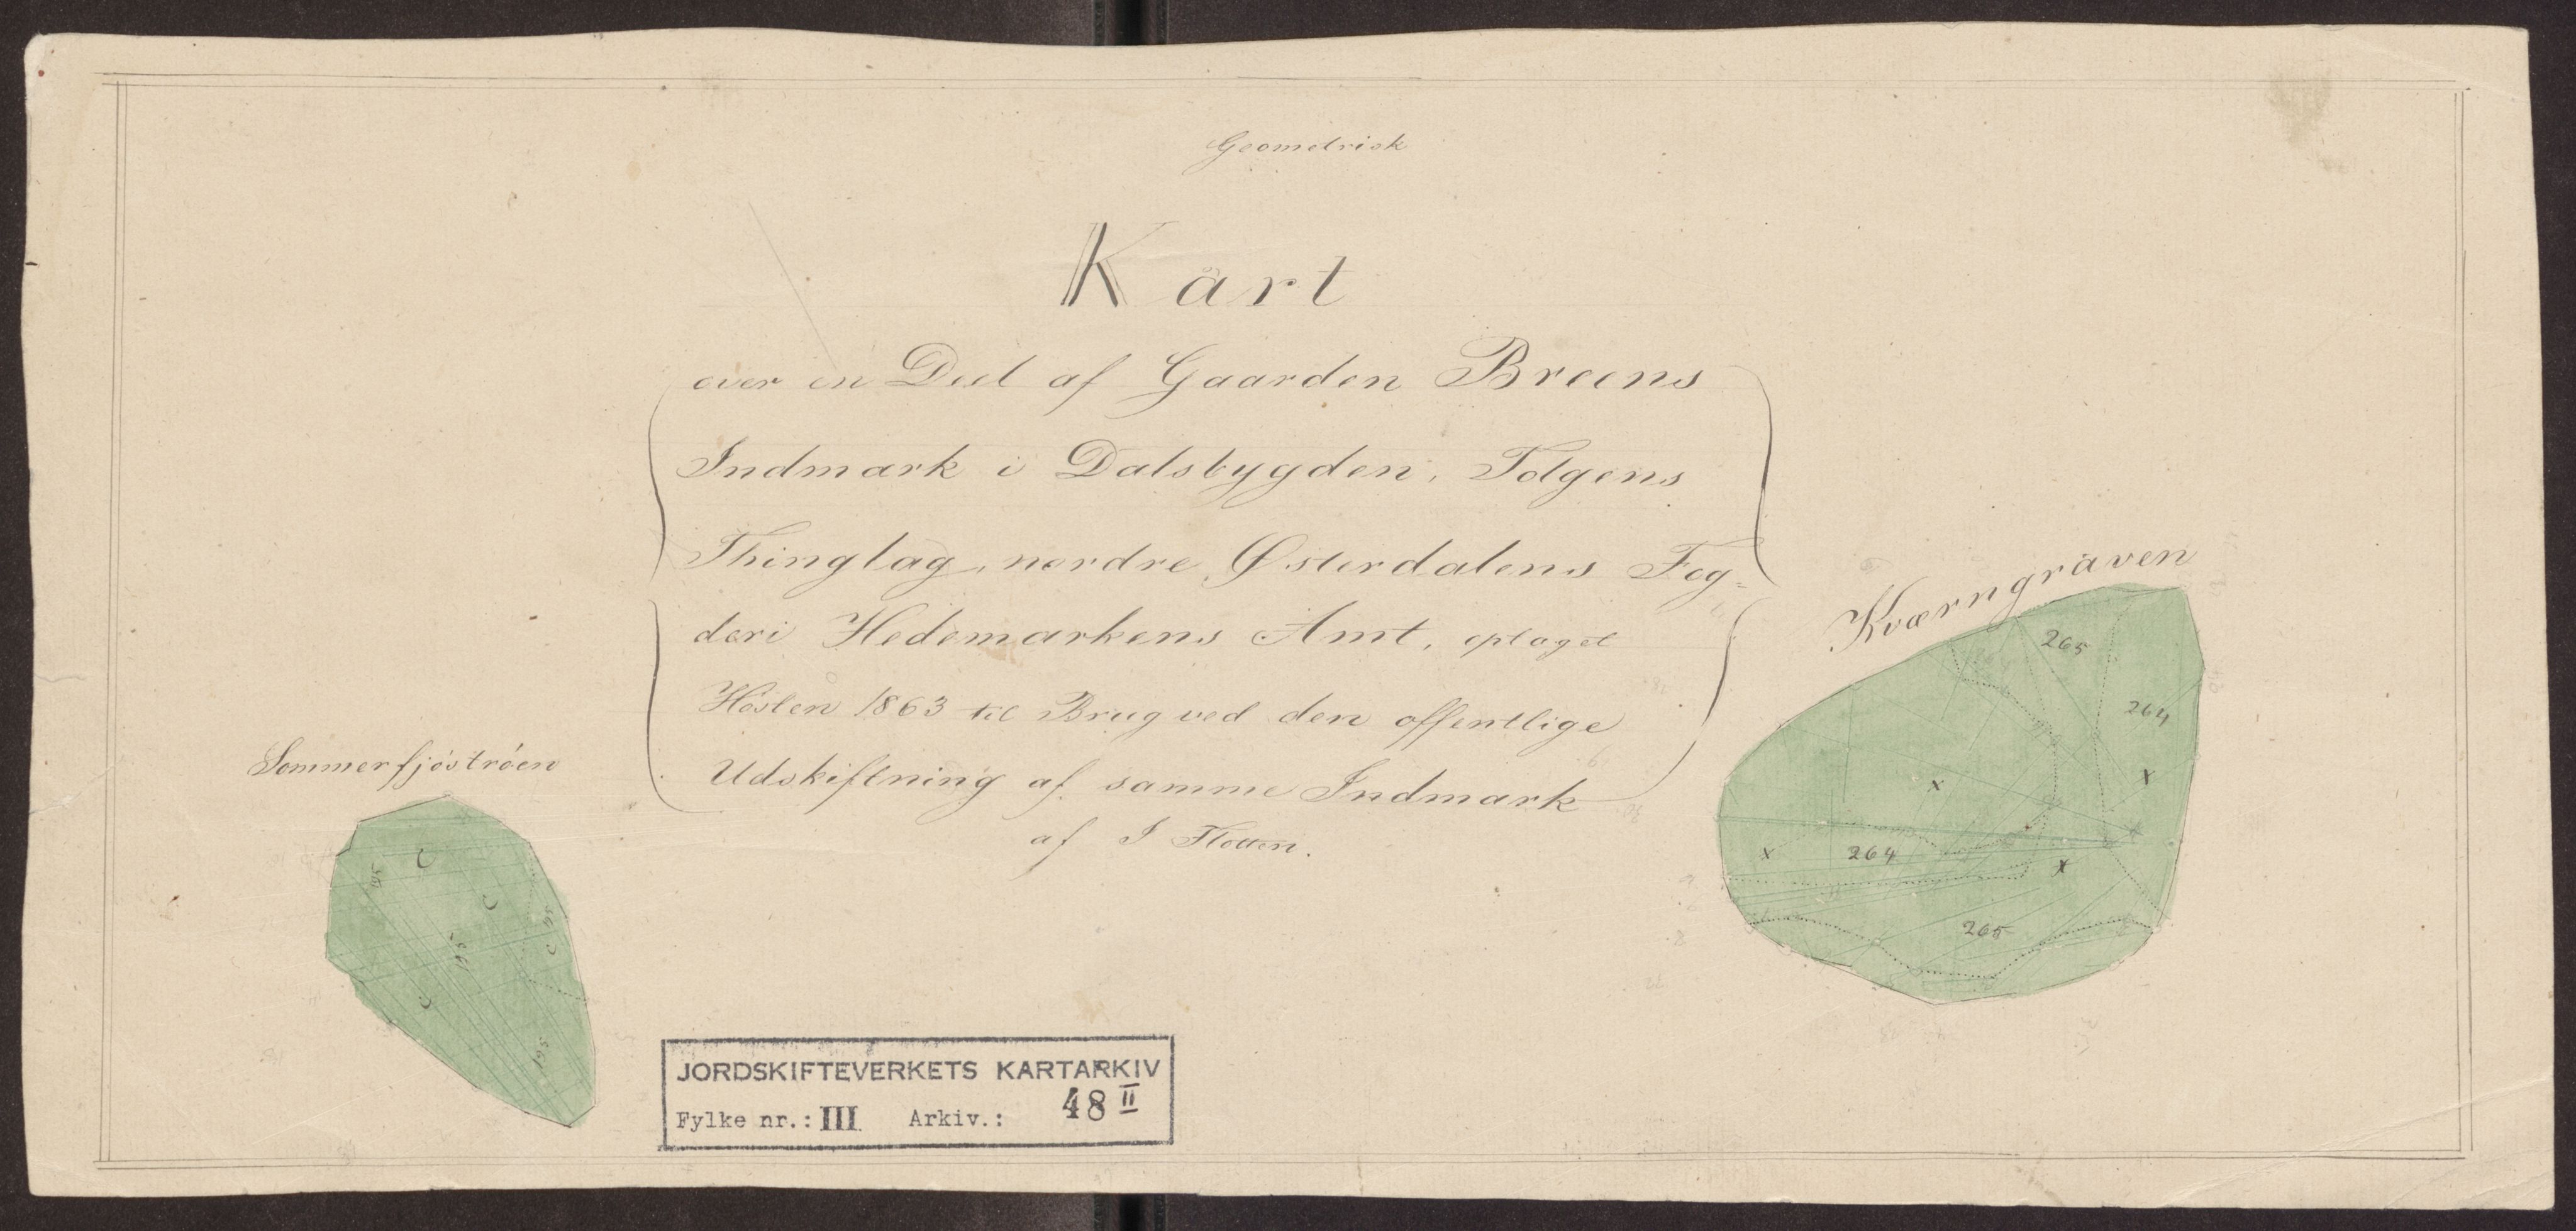 Geometrisk
Kart
over en Deel af Gaarden Breens
Indmark i Dalsbygden, Tolgens
Thinglag, nordre Østerdalens Fog-
deri Hedemarkens Amt, optaget
Høsten 1863 til Brug ved den offentlige
Udskiftning af samme Indmark
af I Flouen.
Kværngraven
265
264
x
x
x
264
x
265
Sommerfjøstrøen
195
C
C
195
C
195
C
195
JORDSKIFTEVERKETS KARTARKIV
Fylke nr.: III Arkiv.: 48 II